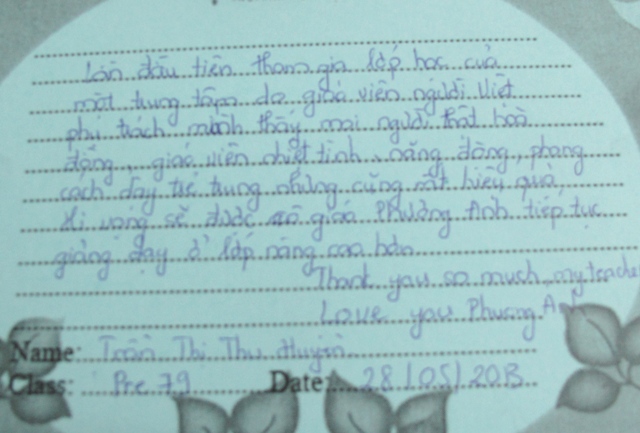 Lần đầu tiên tham gia lớp học của
một trung tâm do giáo viên người Việt
phụ trách mình thấy mọi người thật hoà
đồng, giáo viên nhiệt tình, năng động, phong
cách dạy trẻ trung nhưng cũng rất hiệu quả,
Hi vọng sẽ được cô giáo Phương Anh tiếp tục
giảng dạy ở lớp nâng cao hơn
Thank you so much, my teacher
Love you Phương Anh
Name: Trần Thị Thu Huyền
Class: Pre 79 Date: 28/05/2013